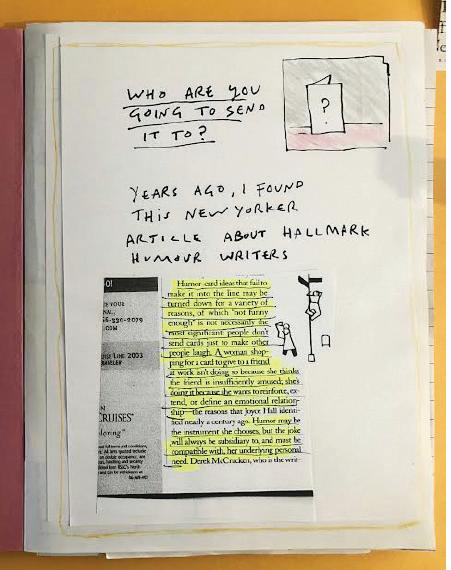 WHO ARE YOU
GOING TO SEND
IT TO?
?
YEARS AGO, I FOUND
THIS NEW YORKER
ARTICLE ABOUT HALLMARK
HUMOUR WRITERS
Humor card ideas that fail to
make it into the line may be
turned down for a variety of
reasons, of which "not funny
enough" is not necessarily the
most significant. people don't
send cards just to make other
people laugh. A woman shop-
ping for a card to give to a friend
at work isn't doing so because she thinks
the friend is insufficiently amused; she's
doing it because she wants to reinforce, ex-
tend, or define an emotional relation-
ship—the reasons that Joyce Hall identi-
fied nearly a century ago. Humor may be
the instrument she chooses, but the joke
will always be subsidiary to, and must be
compatible with, her underlying personal
need. Derek McCracken, who is the writ-
YOUR
-330-2079
.COM
LINE 2003
CRUISES'